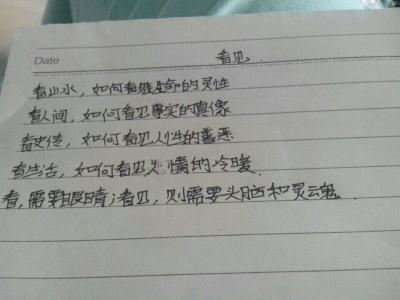 Date
看见.
看山水，如何看见生命的灵性
看人间，如何看见事实的真像
看史传，如何看见人性的善恶
看生活，如何看见人情的冷暖.
看，需要眼睛；看见，则需要头脑和灵魂.